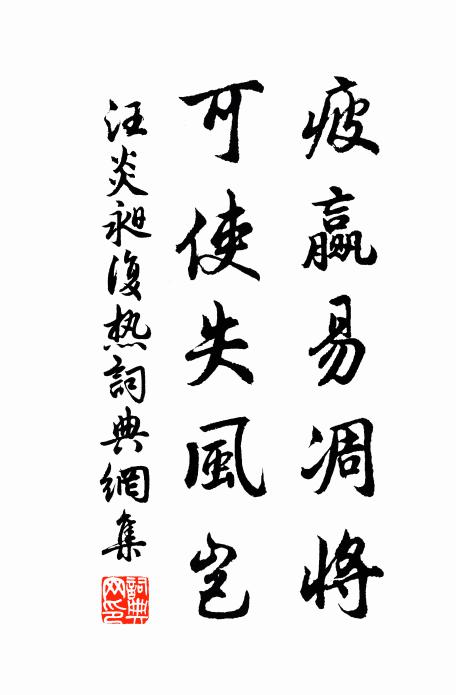 疲羸易凋將
可使失風岂
汪炎昶復热詞典網集
詞典網印